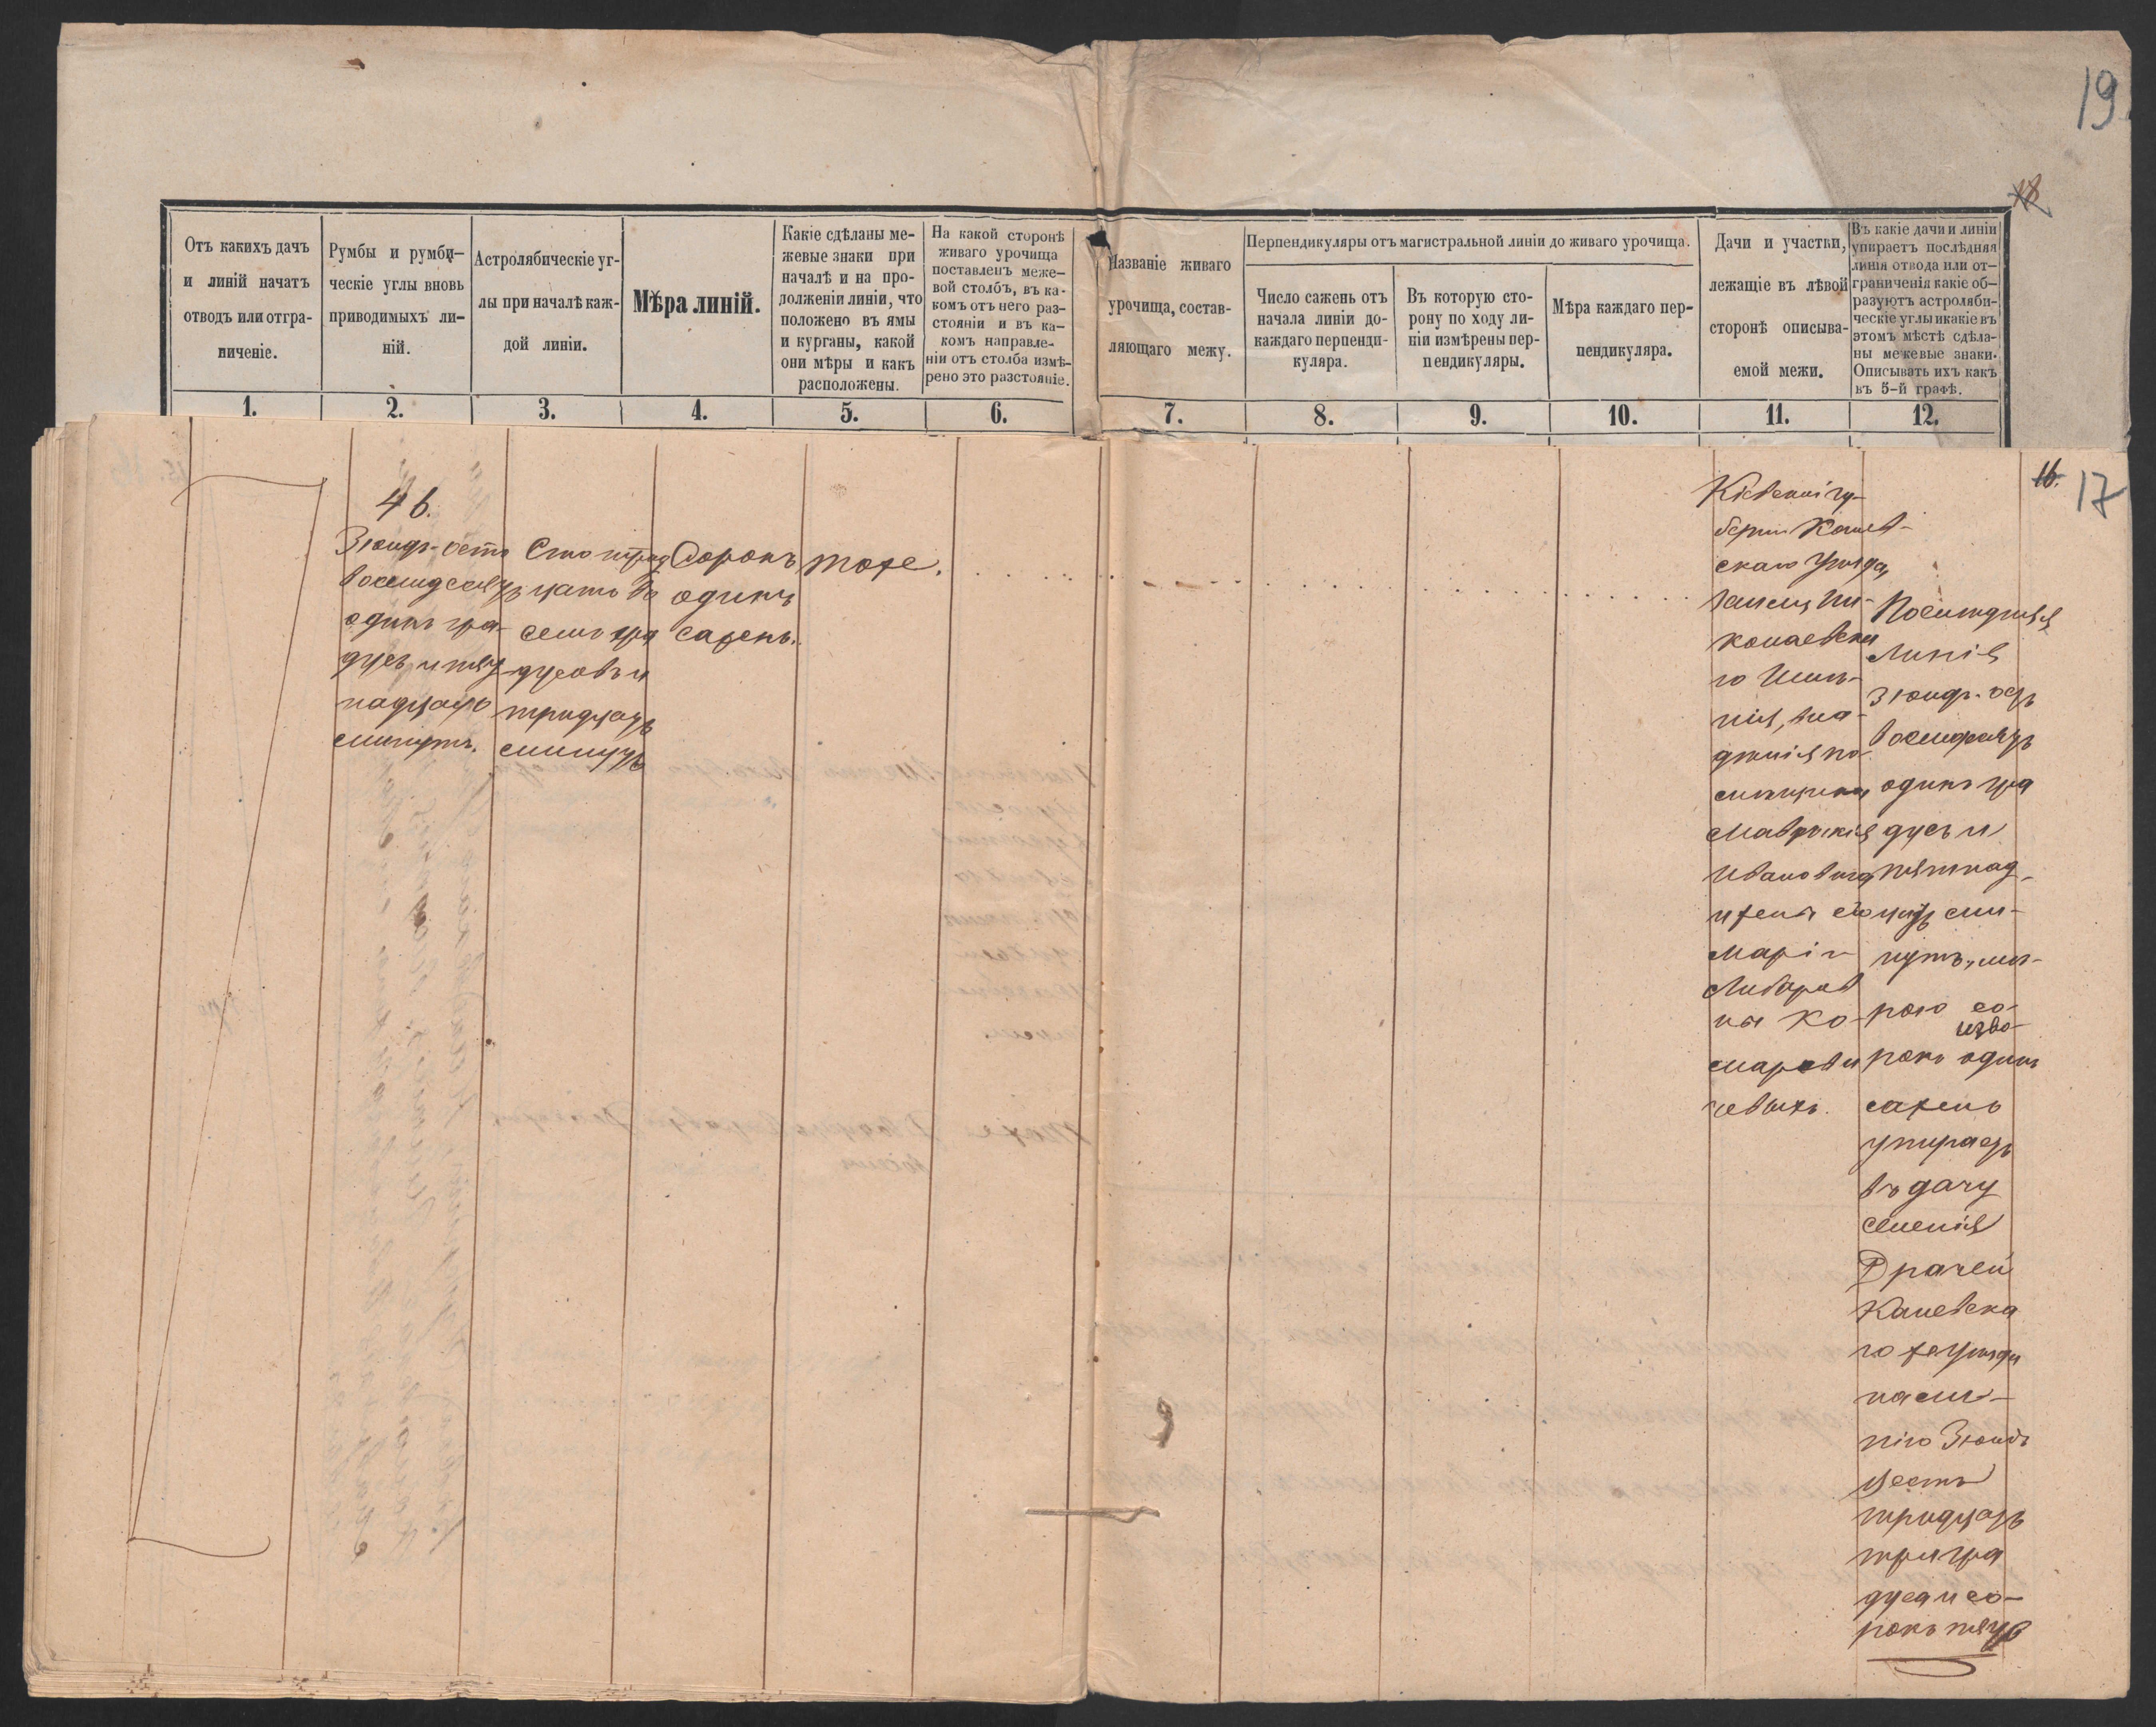 19.
18
Отъ какихъ дачъ
и линій начатъ
отводъ или отгра-
ниченіе.
Румбы и румби-
ческіе углы вновь
приводимыхъ ли-
ній.
Астролябическіе уг-
лы при началѣ каж-
дой линіи.
Мѣра линій.
Какіе сдѣланы ме-
жевые знаки при
началѣ и на про-
долженіи линіи, что
положено въ ямы
и курганы, какой
они мѣры и какъ
расположены.
На какой сторонѣ
живаго урочища
поставленъ меже-
вой столбъ, въ ка-
комъ отъ него раз-
стояніи и въ ка-
комъ направле-
ніи отъ столба измѣ-
рено это разстояніе.
Названіе живаго
урочища, состав-
ляющаго межу.
Перпендикуляры отъ магистральной линіи до живаго урочища.
Число сажень отъ
начала линіи до-
каждаго перпенди-
куляра.
Въ которую сто-
рону по ходу ли-
ніи измѣрены пер-
пендикуляры.
Мѣра каждаго пер-
пендикуляра.
Дачи и участки,
лежащіе въ лѣвой
сторонѣ описыва-
емой межи.
Въ какіе дачи и линіи
упираетъ послѣдняя
линія отвода или от-
граниченія какіе об-
разуютъ астроляби-
ческіе углы и какіе въ
этомъ мѣстѣ сдѣла-
ны межевые знаки.
Описывать ихъ какъ
въ 5-й графѣ.
1. 2. 3. 4. 5. 6. 7. 8. 9. 10. 11. 12.
16.
17
46.
Зюидъ-остъ
восемдесятъ
одинъ гра-
дусъ и пят
надцать
минутъ.
Сто трид
цать
семь гра
дусовъ и
тридцать
минутъ
Сорокъ
одинъ
сажень.
Тоже.
Кіевской гу-
берніи Канев-
скаго Уѣзда,
ни-
колаевска
го Имѣ-
нія, вла-
дѣнія по-
мѣщика
Маврикія
Ивановича
и жены его
Маріи
ны Ко-
марови
чевыхъ.
Послѣдняя
Линія
зюидъ-остъ
восемдесятъ
одинъ гра
дусъ и
пятнад-
цать ми-
нутъ, мѣ-
рою со-
рокъ одинъ
сажень
упираетъ
въ дачу
селенія
Драчей
Каневска
го же уѣзда
на ли-
нію Зюидъ
вестъ
тридцать
три гра
дуса и со-
рокъ пять